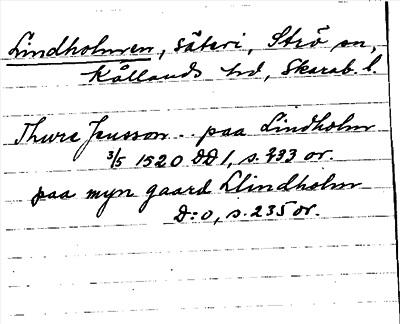 Lindholmen, säteri, Strö sn,
Kållands hd, Skarab. l.
Thure Jensson .. paa Lindholm
3/5 1520 DD 1, s. 233 or.
paa myn gaard Llindholm
D:o, s. 235 or.